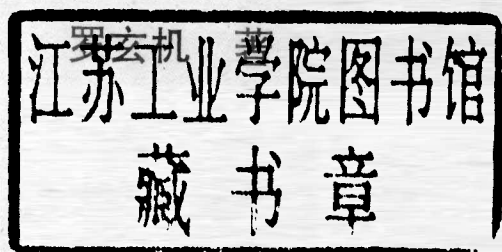 罗玄机 著
江苏工业学院图书馆
藏书章